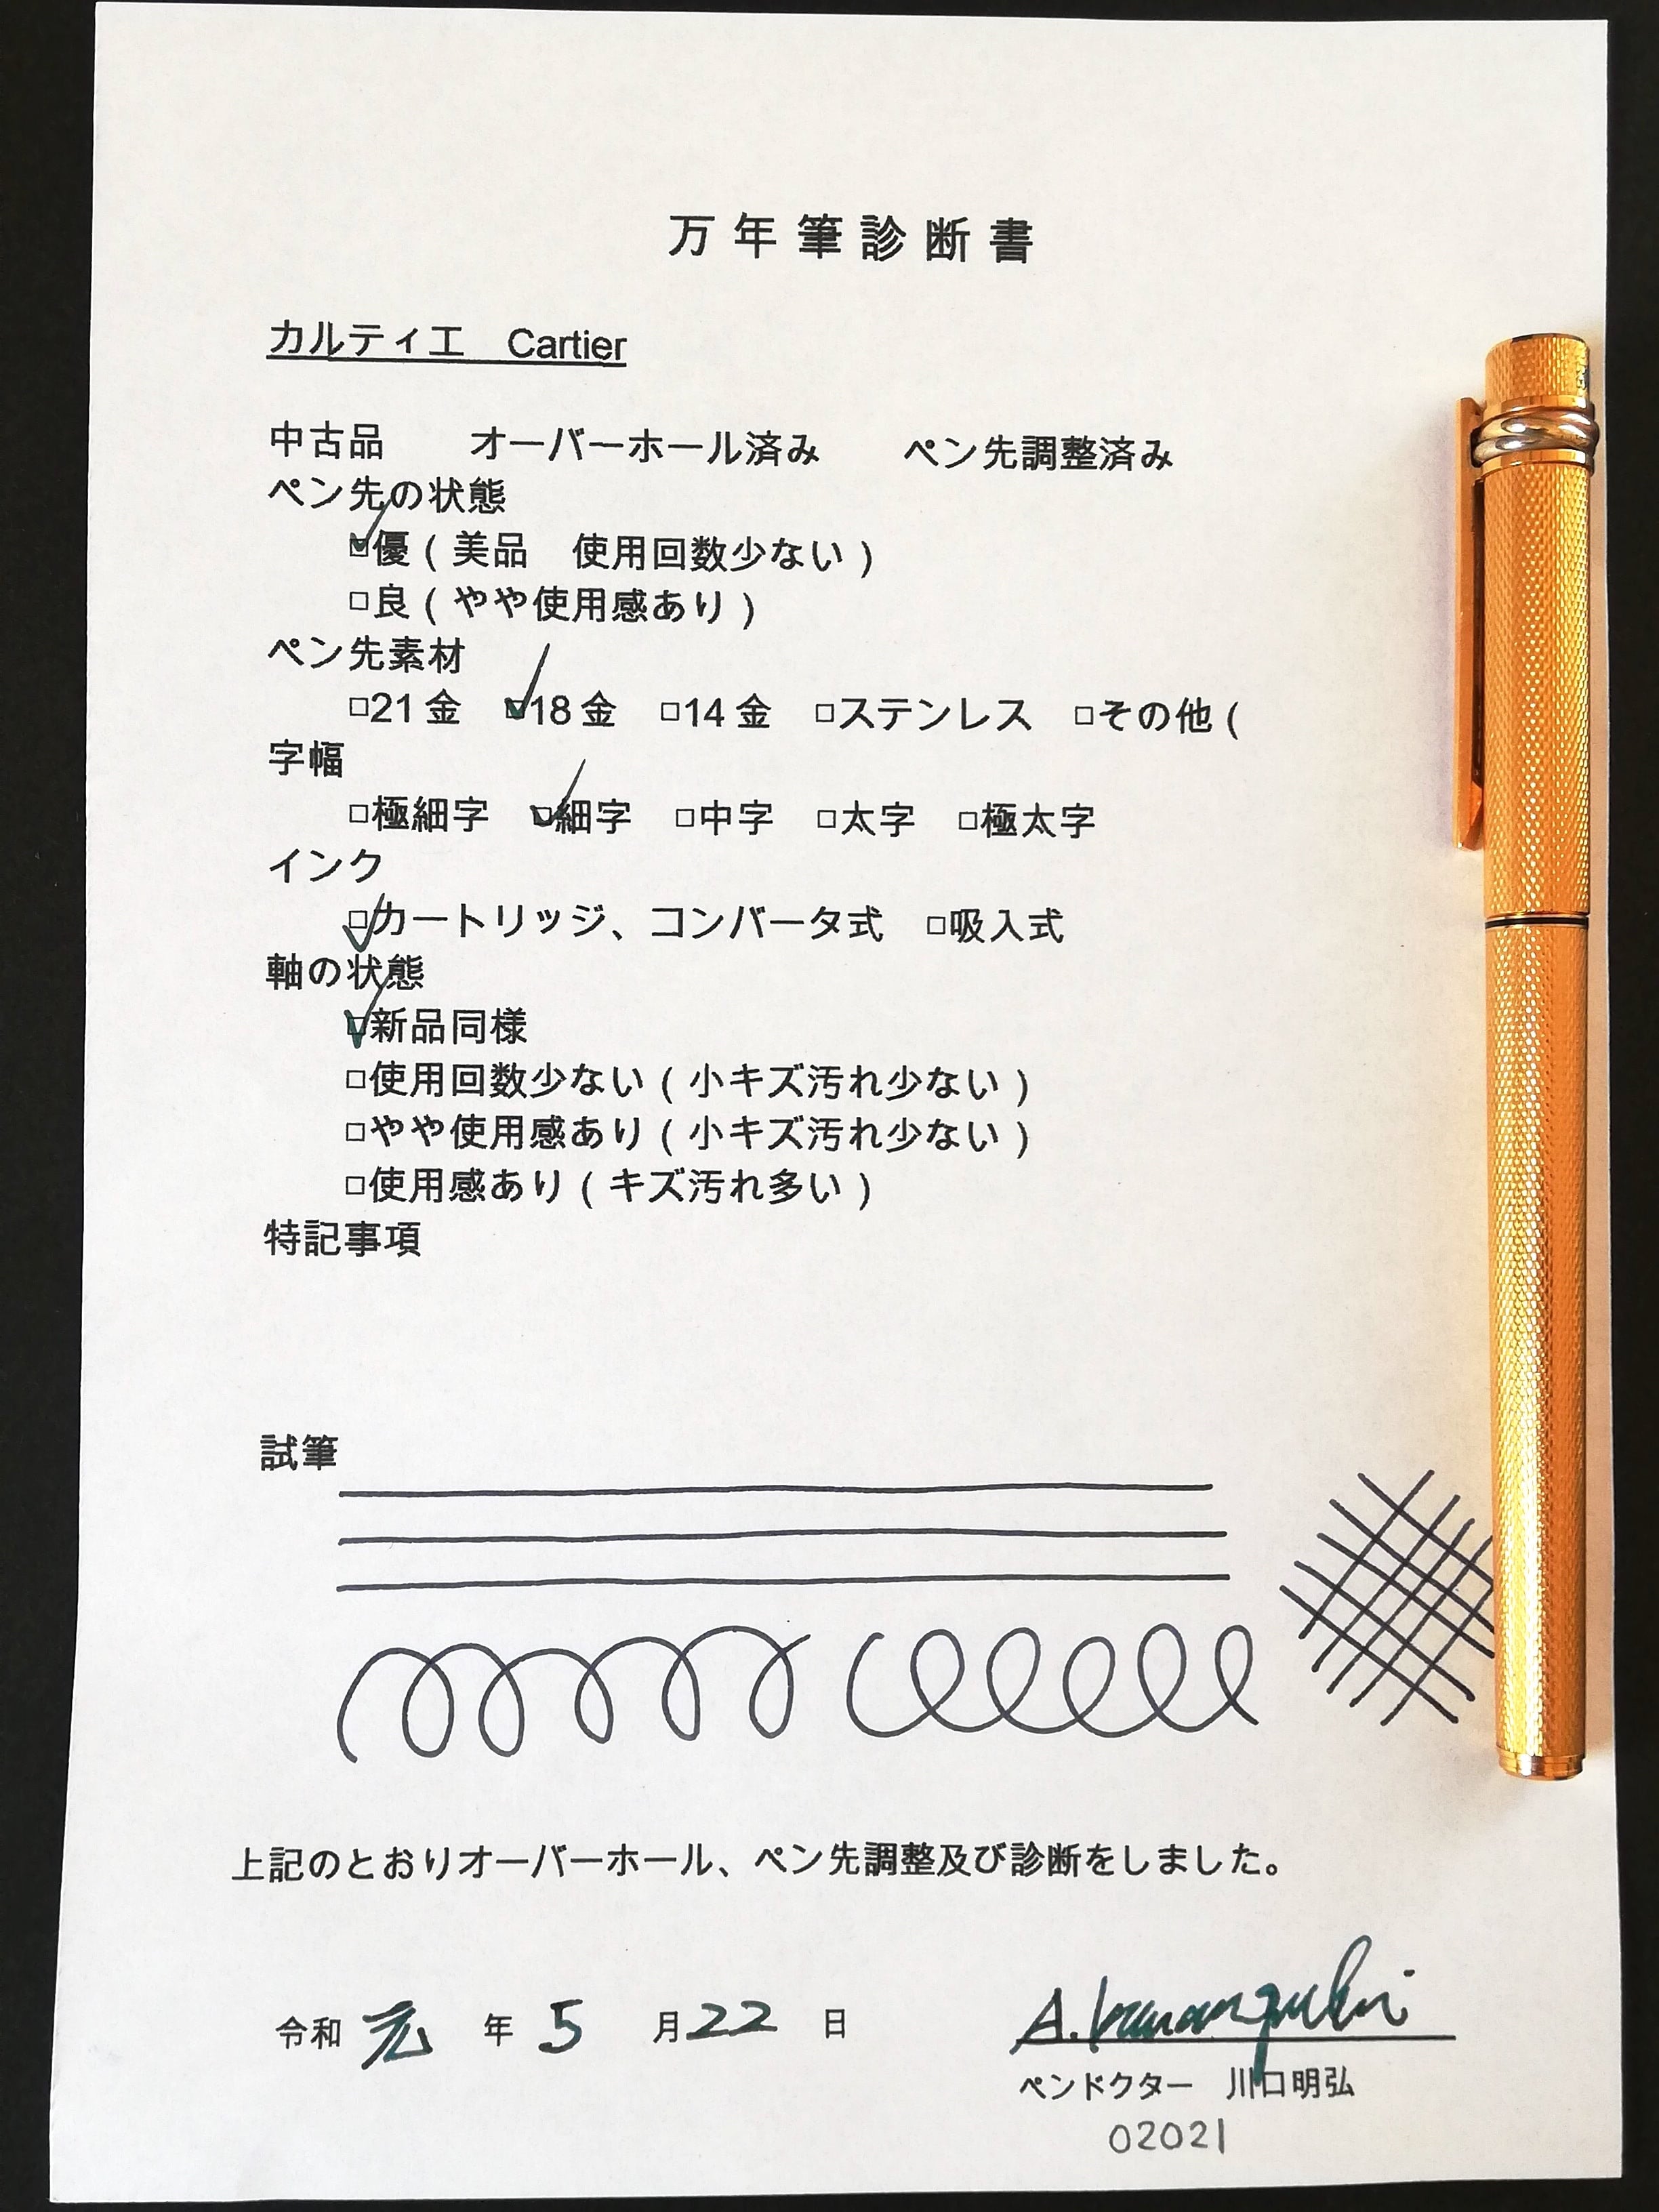 万年筆診断書
カルティエ　Cartier
中古品　　オーバーホール済み　　ペン先調整済み
ペン先の状態
☑優（美品　使用回数少ない）
□良（やや使用感あり）
ペン先素材
□21金　☑18金　□14金　□ステンレス　□その他（
字幅
□極細字　☑細字　□中字　□太字　□極太字
インク
☑カートリッジ、コンバータ式　□吸入式
軸の状態
☑新品同様
□使用回数少ない（小キズ汚れ少ない）
□やや使用感あり（小キズ汚れ少ない）
□使用感あり（キズ汚れ多い）
特記事項
試筆
上記のとおりオーバーホール、ペン先調整及び診断をしました。
令和 元 年 5 月 22 日
A. Kawaguchi
ペンドクター　川口明弘
02021